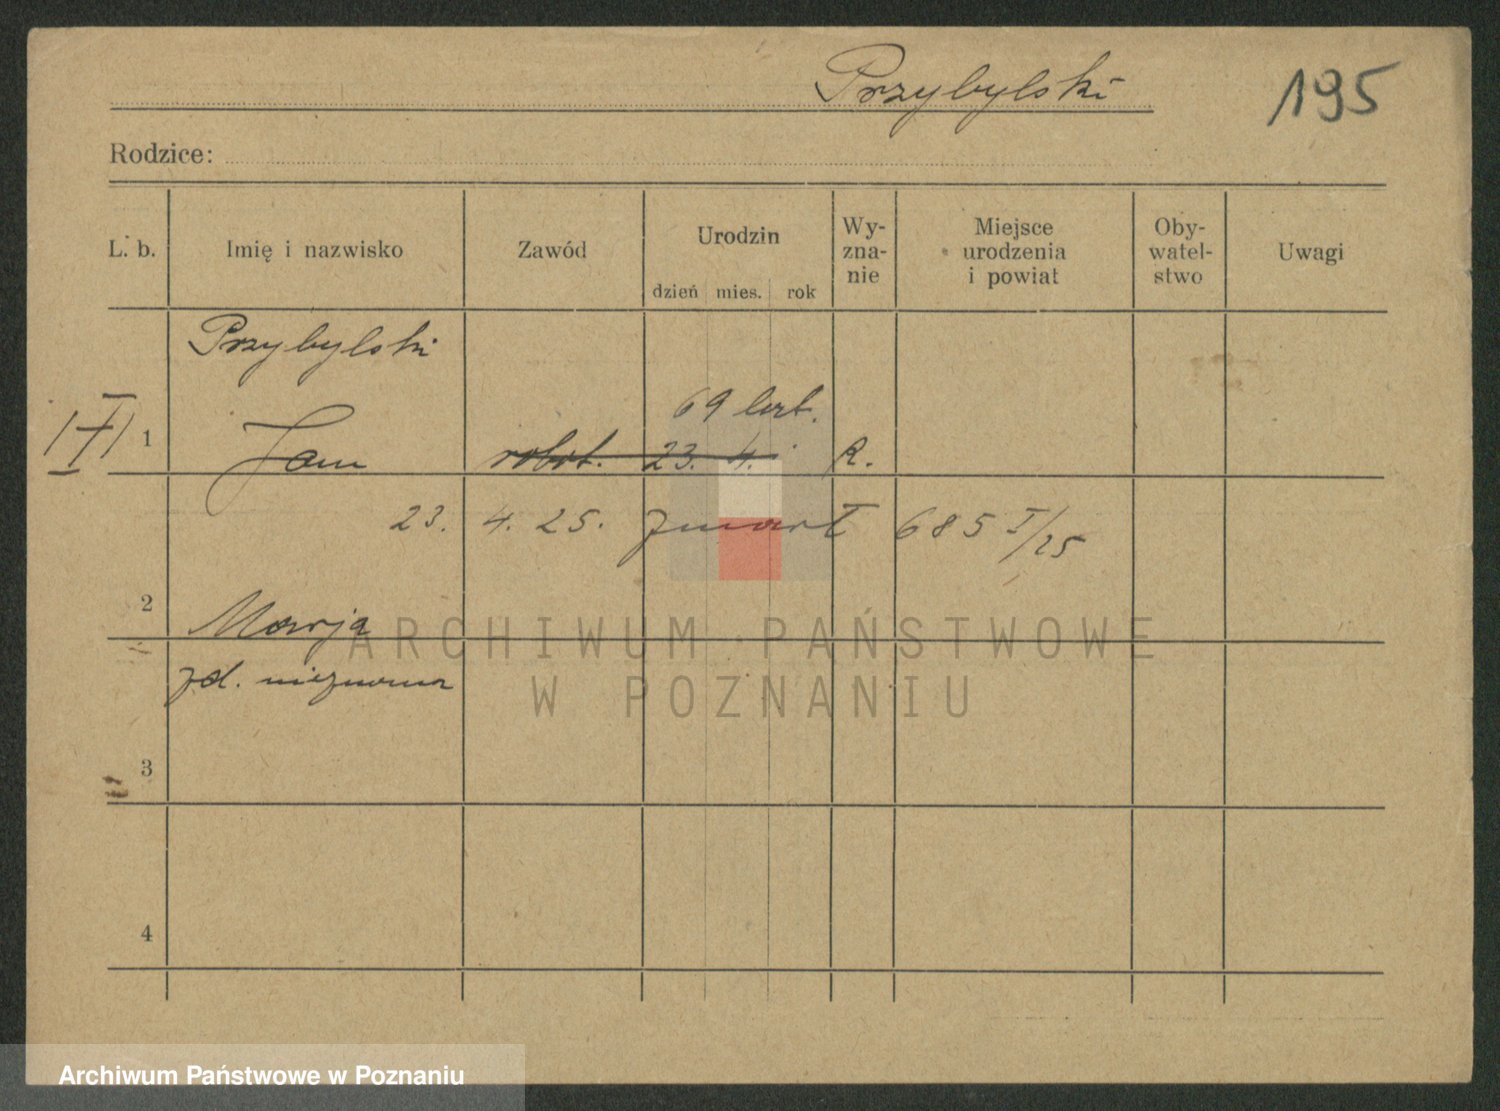 Przybylski
195
Rodzice:
L. b.
Imię i nazwisko
Zawód
Urodzin
dzień mies. rok
Wy-
zna-
nie
Miejsce
urodzenia
i powiat
Oby-
watel-
stwo
Uwagi
Przybylski
69 lat.
1 Jan robot. 23. 4. R.
23. 4. 25. zmarł 685 I/25
2 Marja
zd. nieznana
3
4
ARCHIWUM PAŃSTWOWE
W POZNANIU
Archiwum Państwowe w Poznaniu